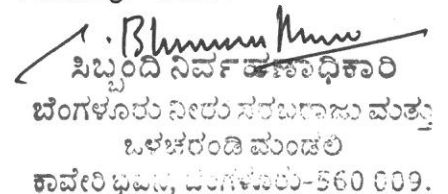 ಸಿಬ್ಬಂದಿ ನಿರ್ವಹಣಾಧಿಕಾರಿ
ಬೆಂಗಳೂರು ನೀರು ಸರಬರಾಜು ಮತ್ತು
ಒಳಚರಂಡಿ ಮಂಡಲಿ
ಕಾವೇರಿ ಭವನ, ಬೆಂಗಳೂರು-560 009.